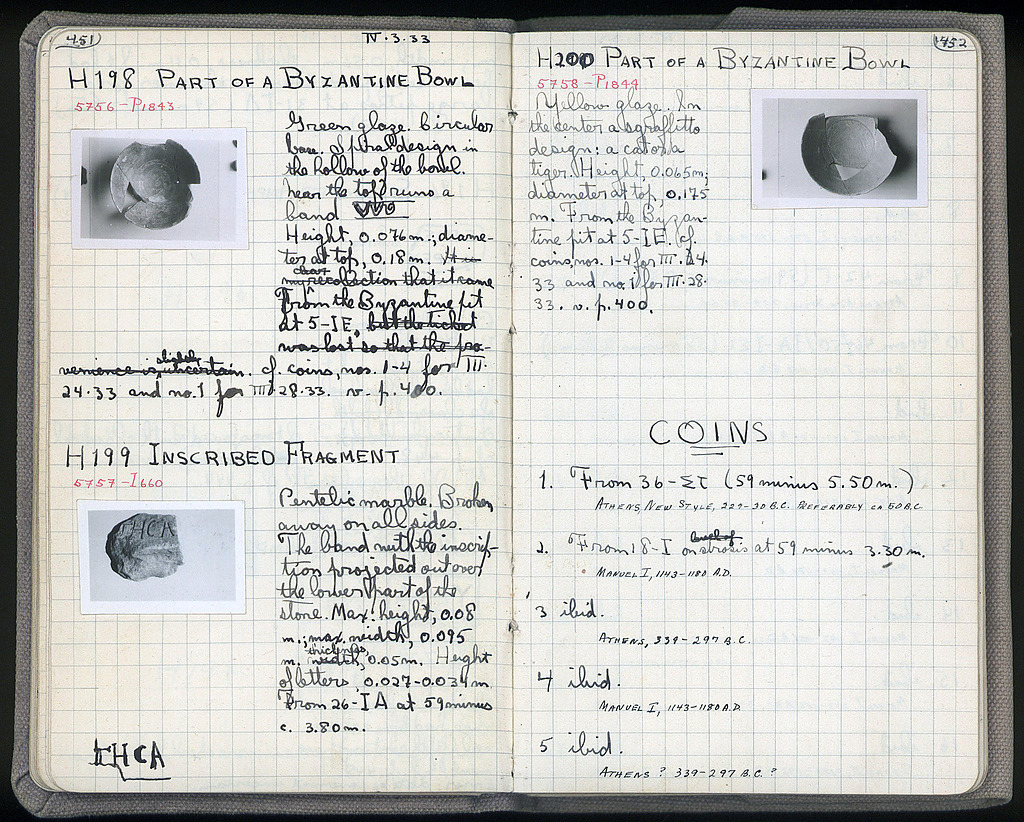 451
IV.3.33
H198 PART OF A BYZANTINE BOWL
5756-P1843
Green glaze. Circular
base. Spiral design in
the hollow of the bowl.
Near the top runs a
band
Height, 0.076 m.; diame-
ter at top, 0.18 m. It is
clear
my recollection that it came
From the Byzantine pit
at 5-IE, but the ticket
was lost so that the pro-
slightly
venience is uncertain. cf. coins, nos. 1-4 for III.
24.33 and no. 1 for III.28.33. v. p. 400.
H199 INSCRIBED FRAGMENT
5757-I660
Pentelic marble. Broken
away on all sides.
The band with the inscrip-
tion projected out over
the lower part of the
stone. Max. height, 0.08
m.; max. width, 0.095
thickness,
m. width, 0.05 m. Height
of letters, 0.027-0.034 m.
From 26-IA at 59 minus
c. 3.80 m.
ΙHCA
452
H200 PART OF A BYZANTINE BOWL
5758-P1844
Yellow glaze. In
the center a sgraffitto
design: a cat or a
tiger. Height, 0.065 m;
diameter at top, 0.175
m. From the Byzan-
tine pit at 5-IE. Cf.
coins, nos. 1-4 for III.24.
33 and no. 1 for III.28.
33. v. p. 400.
COINS
1. From 36-ΣΤ (59 minus 5.50 m.)
ATHENS, NEW STYLE, 229-30 B.C. PREFERABLY ca 60 B.C.
level of
2. From 18-I on strosis at 59 minus 3.30 m.
MANUEL I, 1143-1180 A.D.
3 ibid.
ATHENS, 339-297 B.C.
4 ibid.
MANUEL I, 1143-1180 A.D.
5 ibid.
ATHENS ? 339-297 B.C. ?